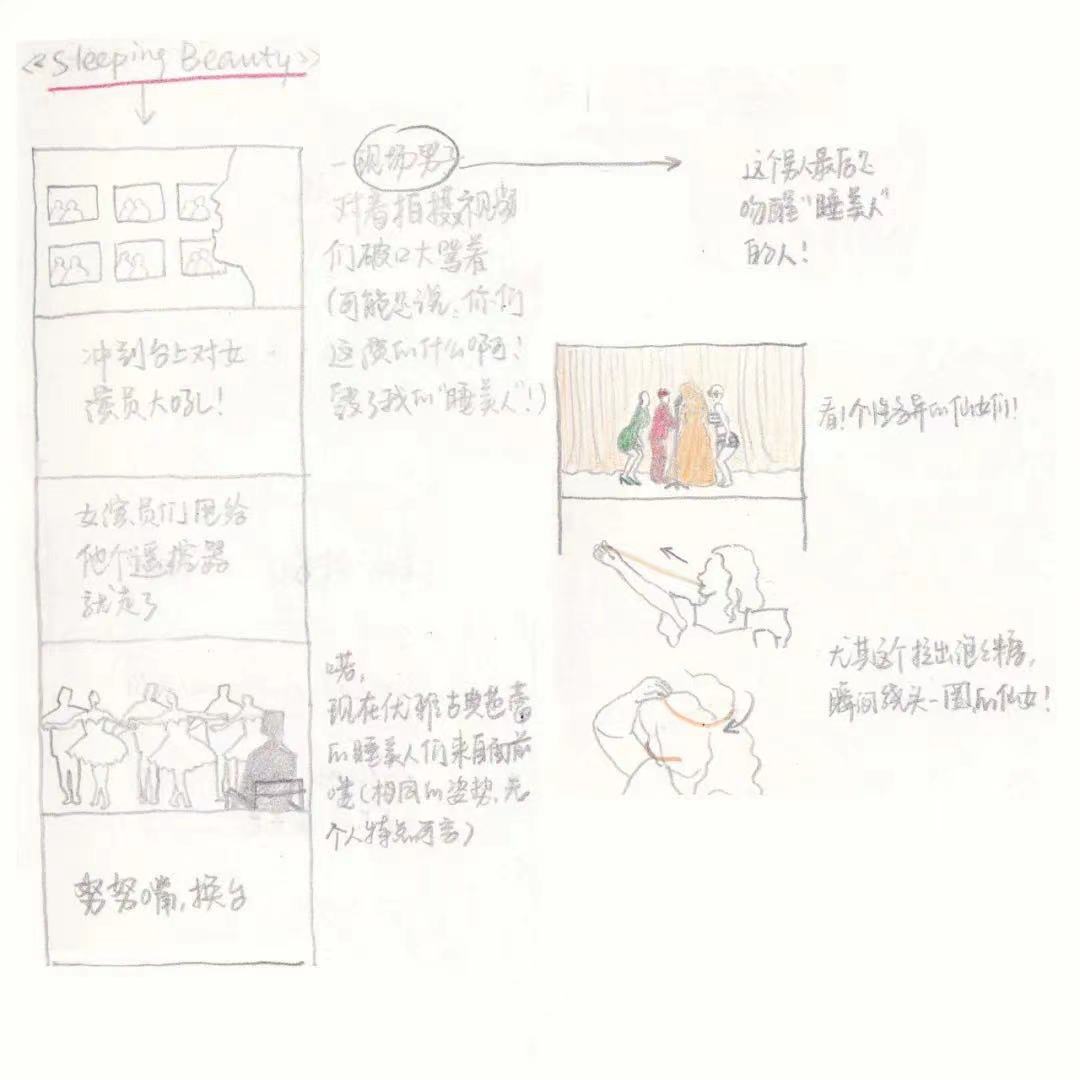 《Sleeping Beauty》
现场男
对着拍摄视频
们破口大骂着
(可能是说:你们
这演的什么啊!
毁了我的“睡美人”!)
这个男人最后是
吻醒“睡美人”
的人!
冲到台上对女
演员大吼!
看!个性各异的仙女们!
女演员们甩给
他个遥控器
就走了
尤其这个拉出泡泡糖,
瞬间绕头一圈的仙女!
喏,
现在优雅古典芭蕾
的睡美人们来到面前
喽(相同的姿势,无
个人特点可言)
努努嘴,换台